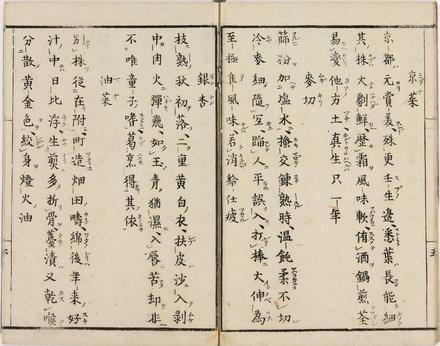 京菜
京都元賞美殊更壬生邊悉葉長能細
其株大劇鮮歴霜風味軟侑酒鍋煎荃
易愛他方土真生只一年
麥切
篩粉加塩水揜交錬熟時溫飩柔不切
冷麥細隨冝蹈人平誤入打棒大伸為
至極佳風味若消給仕疲
銀杏
枝熟秋初落二重黄白衣扶皮沙入剥
中肉火彈癒如玉青猶濕入唇苦却非
不唯童子嗜葛烹得其依
油菜
別株後在附町造畑田疇綿後年来好
汁中日比浮生煎多折骨薹漬又乾喉
分散黄金色絞身燈火油